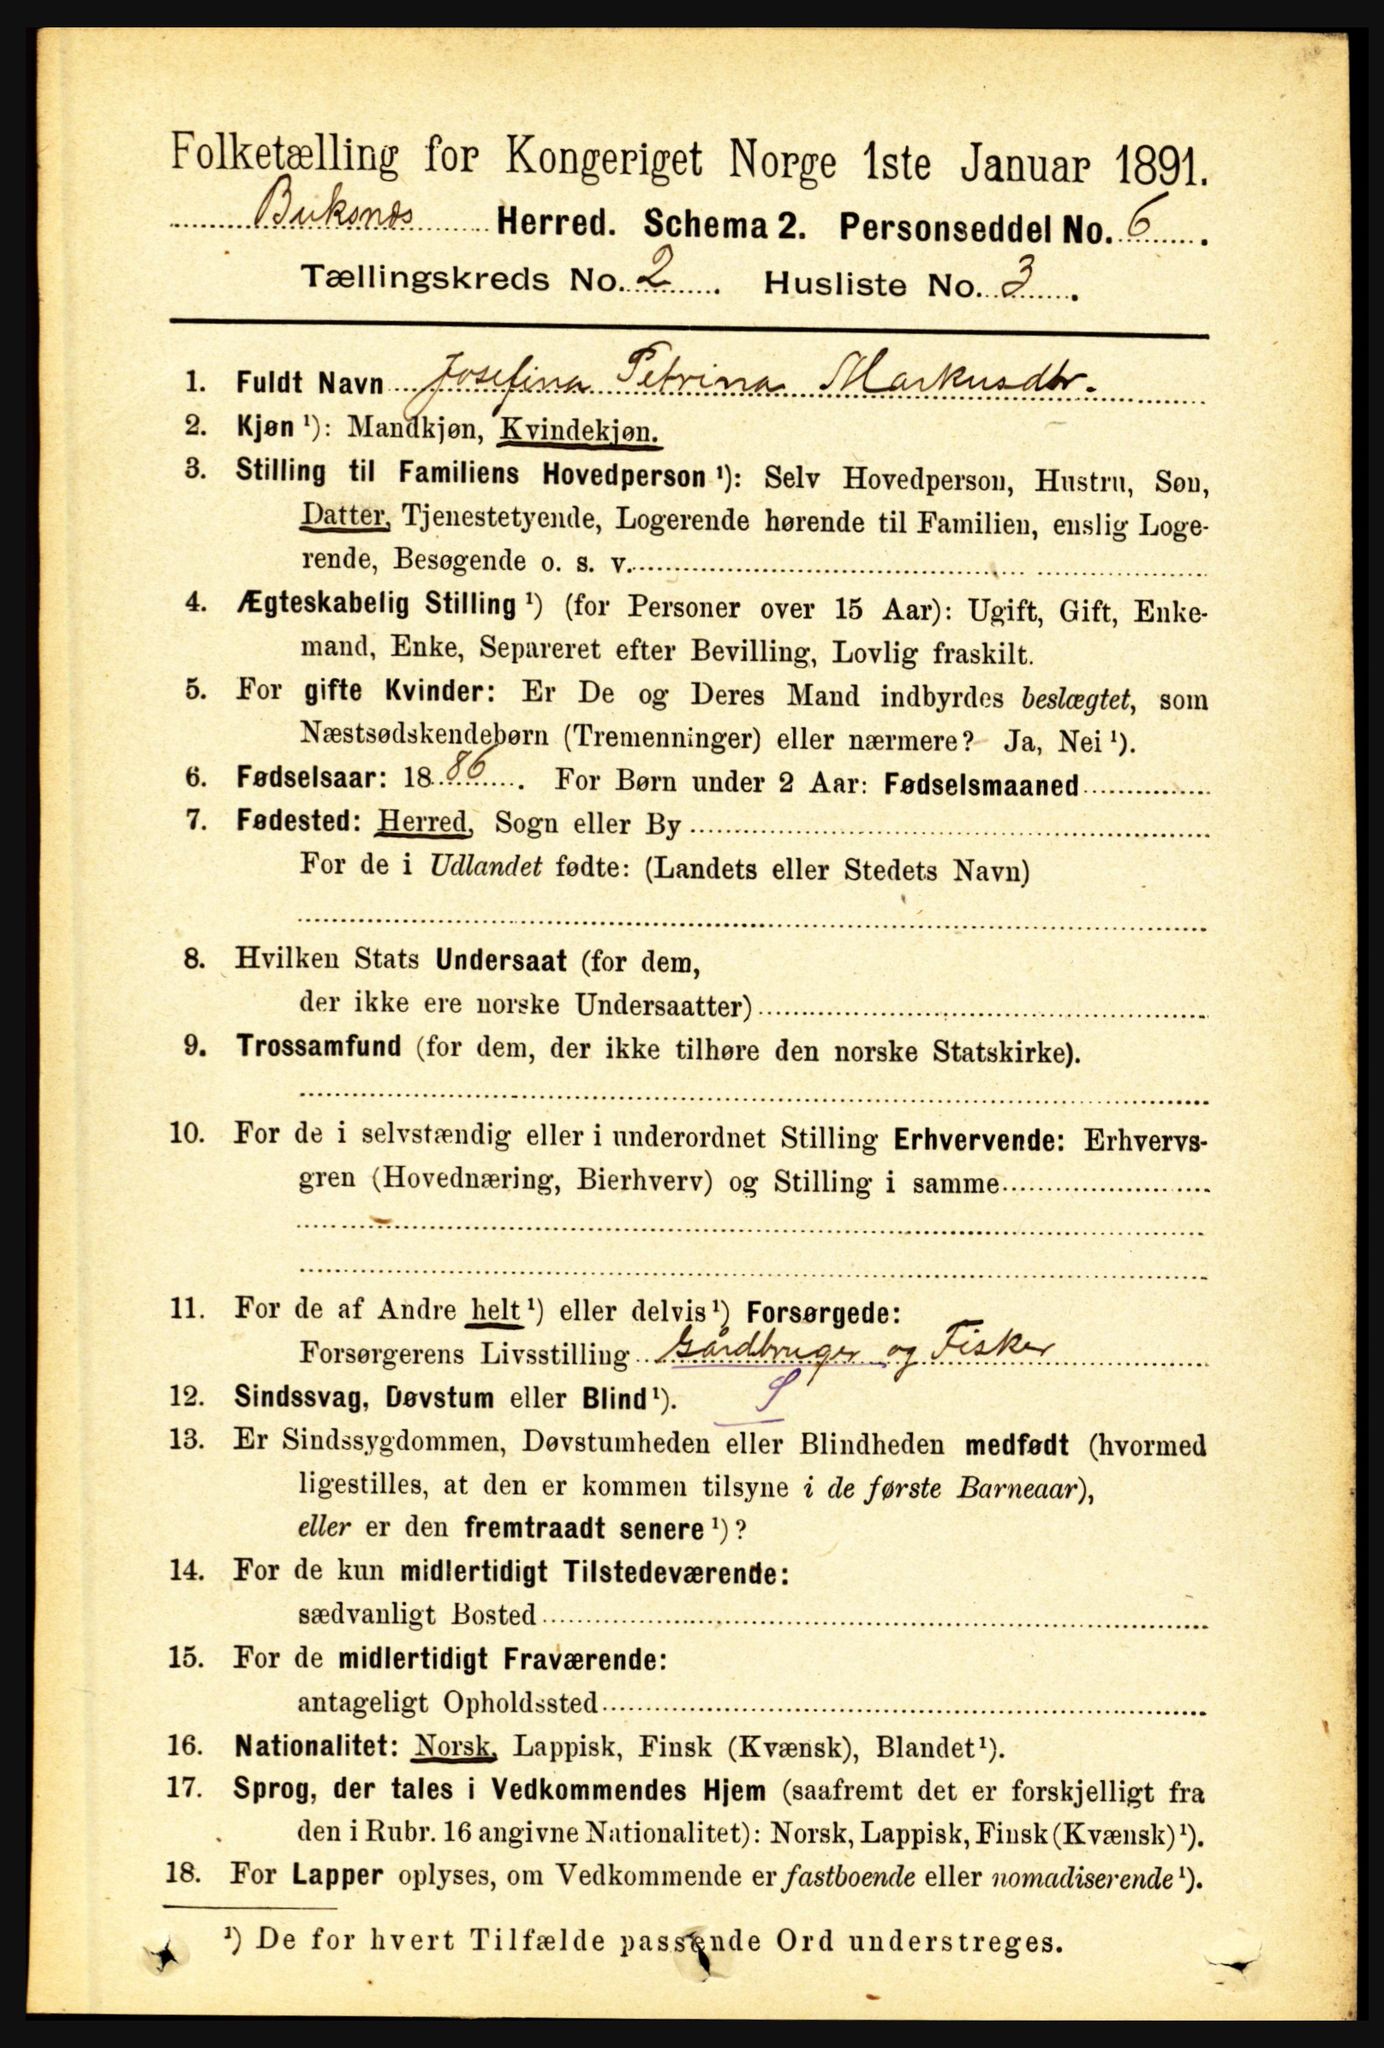 Folketælling for Kongeriget Norge 1ste Januar 1891.
Buksnæs Herred. Schema 2. Personseddel No. 6.
Tællingskreds No. 2. Husliste No. 3.
1. Fuldt Navn Josefina Petrina Markusdtr.
2. Kjøn ¹): Mandkjøn, Kvindekjøn.
3. Stilling til Familiens Hovedperson ¹): Selv Hovedperson, Hustru, Søn,
Datter, Tjenestetyende, Logerende hørende til Familien, enslig Loge-
rende, Besøgende o. s. v.
4. Ægteskabelig Stilling ¹) (for Personer over 15 Aar): Ugift, Gift, Enke-
mand, Enke, Separeret efter Bevilling, Lovlig fraskilt.
5. For gifte Kvinder: Er De og Deres Mand indbyrdes beslægtet, som
Næstsødskendebørn (Tremenninger) eller nærmere? Ja, Nei ¹).
6. Fødselsaar: 1886. For Børn under 2 Aar: Fødselsmaaned
7. Fødested: Herred, Sogn eller By
For de i Udlandet fødte: (Landets eller Stedets Navn)
8. Hvilken Stats Undersaat (for dem,
der ikke ere norske Undersaatter)
9. Trossamfund (for dem, der ikke tilhøre den norske Statskirke).
10. For de i selvstændig eller i underordnet Stilling Erhvervende: Erhvervs-
gren (Hovednæring, Bierhverv) og Stilling i samme
11. For de af Andre helt ¹) eller delvis ¹) Forsørgede:
Forsørgerens Livsstilling Gårdbruger og Fisker
12. Sindssvag, Døvstum eller Blind ¹). S
13. Er Sindssygdommen, Døvstumheden eller Blindheden medfødt (hvormed
ligestilles, at den er kommen tilsyne i de første Barneaar),
eller er den fremtraadt senere ¹)?
14. For de kun midlertidigt Tilstedeværende:
sædvanligt Bosted
15. For de midlertidigt Fraværende:
antageligt Opholdssted
16. Nationalitet: Norsk, Lappisk, Finsk (Kvænsk), Blandet ¹).
17. Sprog, der tales i Vedkommendes Hjem (saafremt det er forskjelligt fra
den i Rubr. 16 angivne Nationalitet): Norsk, Lappisk, Finsk (Kvænsk) ¹).
18. For Lapper oplyses, om Vedkommende er fastboende eller nomadiserende ¹).
¹) De for hvert Tilfælde passende Ord understreges.